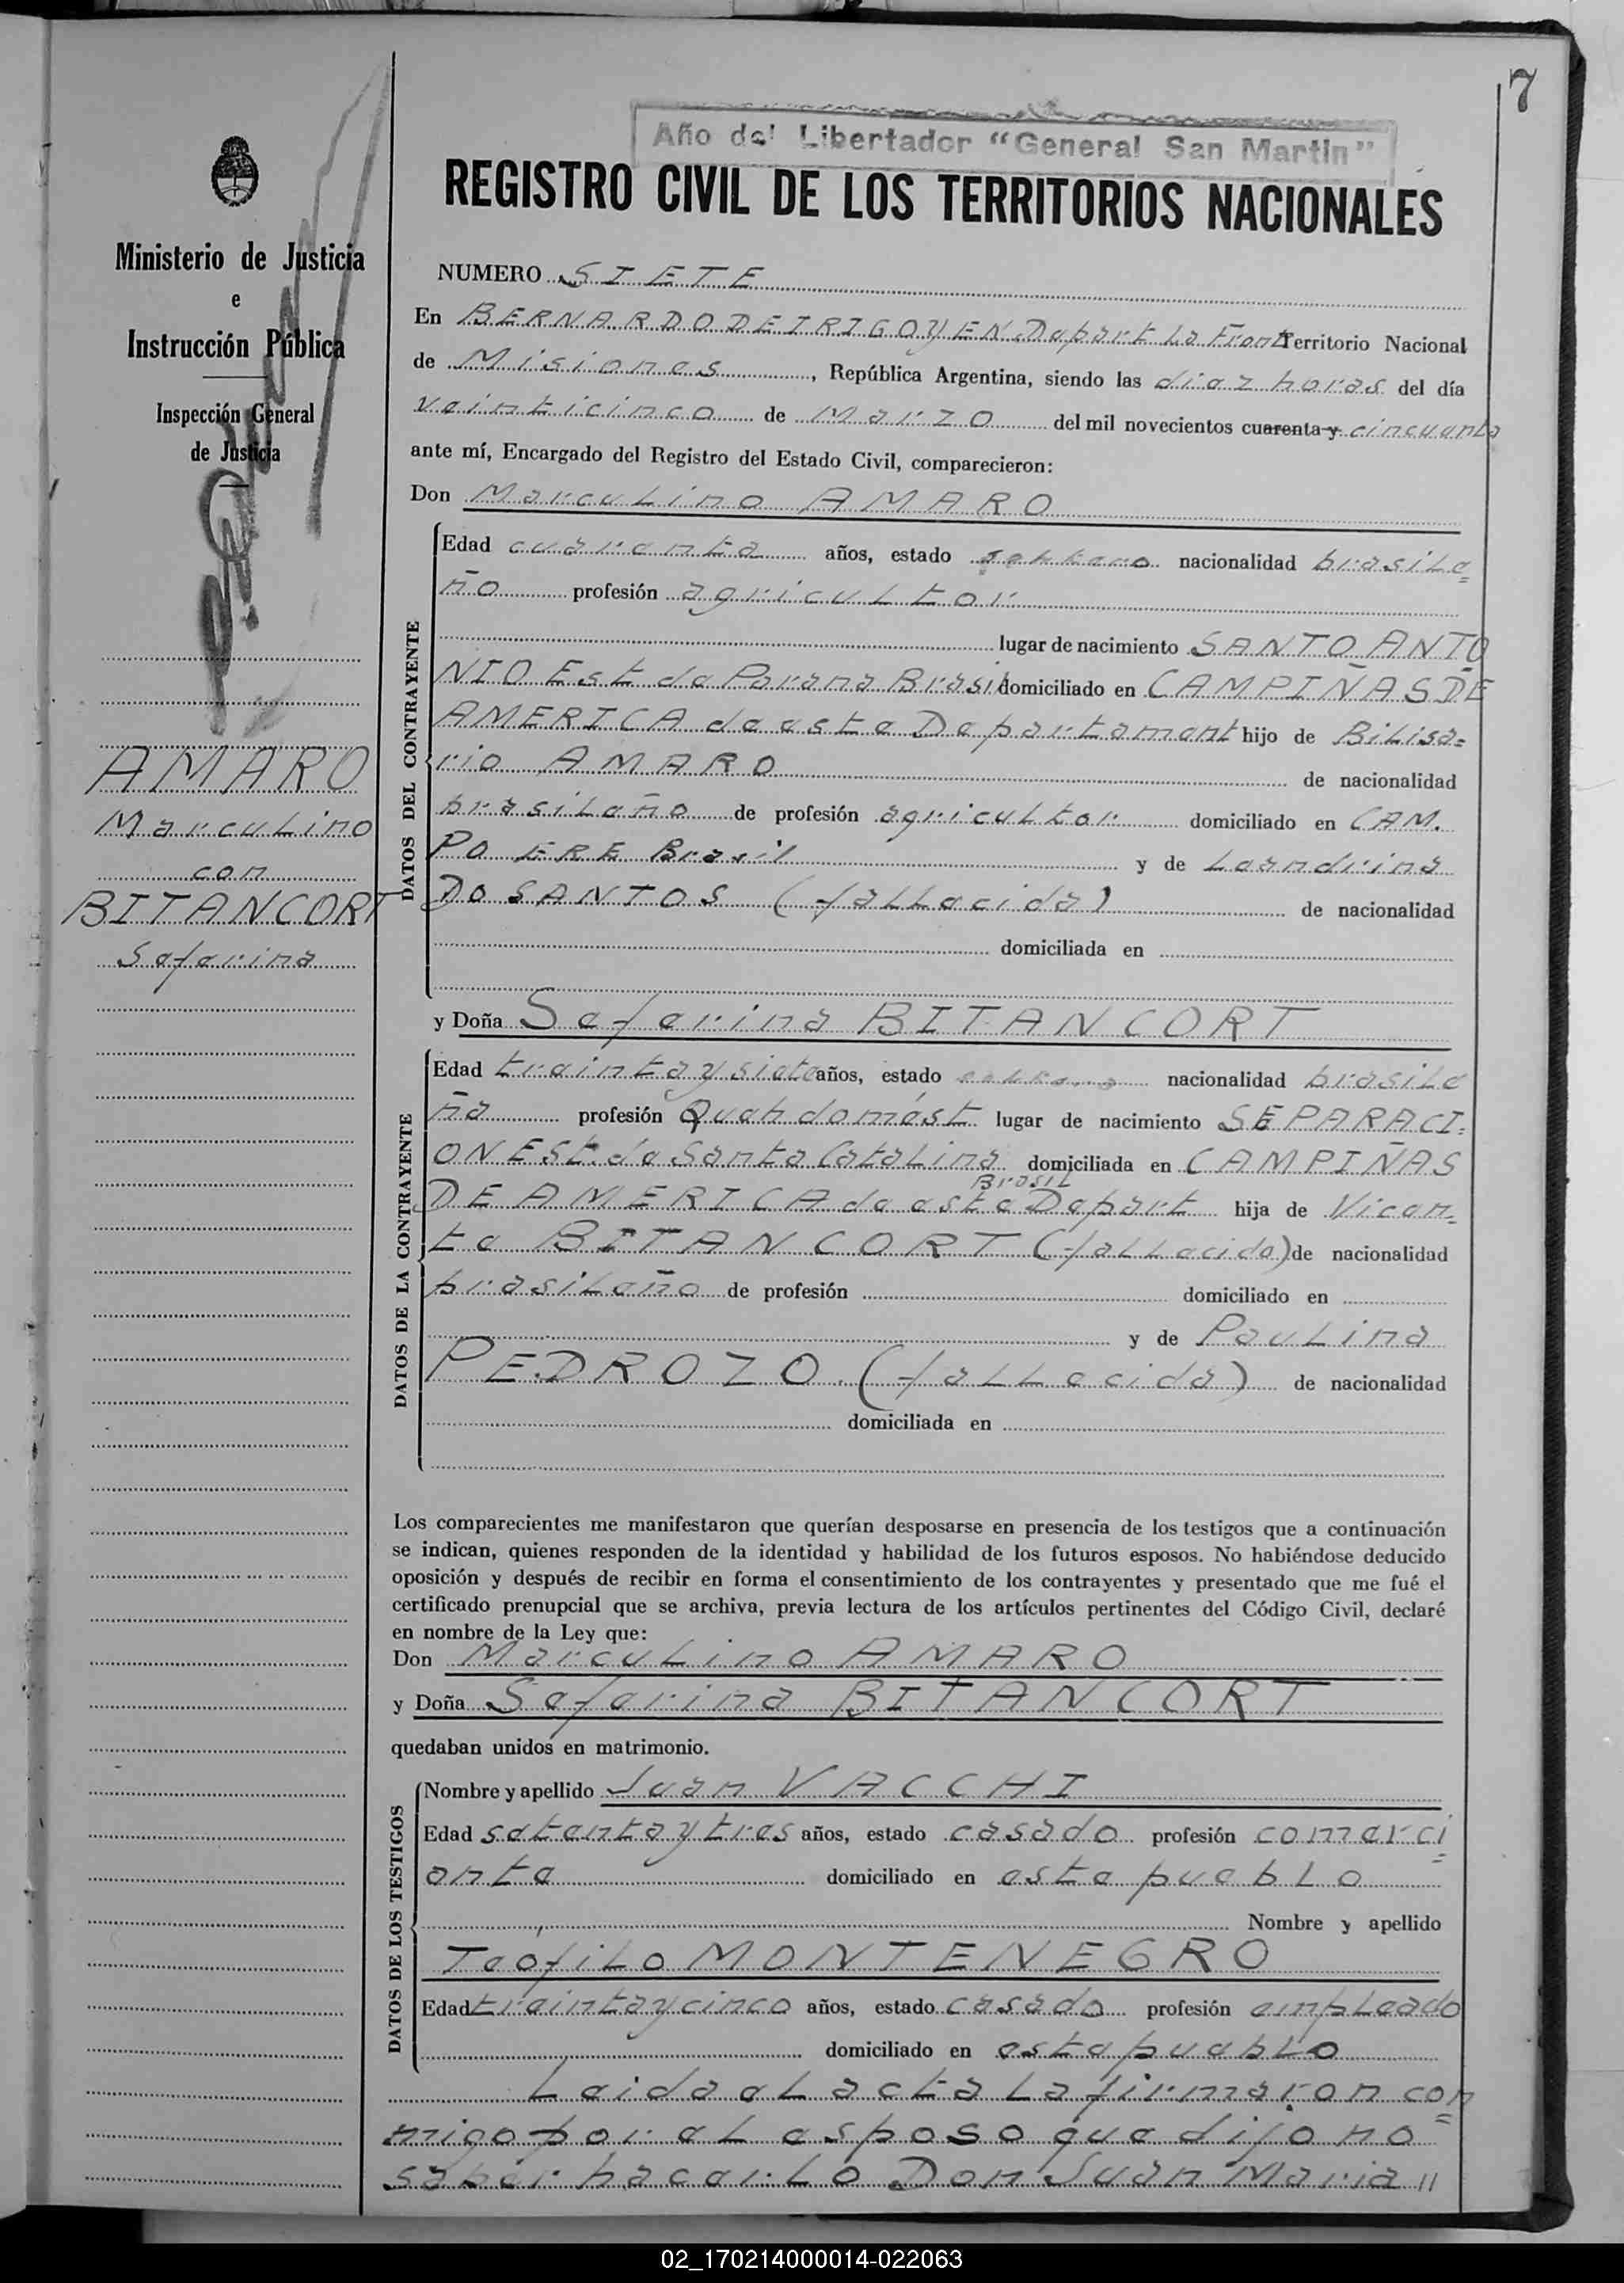 7
Año del Libertador "General San Martin"
REGISTRO CIVIL DE LOS TERRITORIOS NACIONALES
Ministerio de Justicia
e
Instrucción Pública
Inspección General
de Justicia
AMARO
Marculino
con
BITANCORT
Seferina
NUMERO SIETE
En BERNARDO DE IRIGOYEN Depart La Front Territorio Nacional
de Misiones, República Argentina, siendo las diez horas del día
veinticinco de Marzo del mil novecientos cuarenta y cincuenta
ante mí, Encargado del Registro del Estado Civil, comparecieron:
Don Marculino AMARO
DATOS DEL CONTRAYENTE
Edad cuarenta años, estado soltero nacionalidad brasile=
ño profesión agricultor
lugar de nacimiento SANTO ANTO
NIO Est de Parana Brasil domiciliado en CAMPIÑAS DE
AMERICA de este Departament hijo de Bilisa=
rio AMARO de nacionalidad
brasileño de profesión agricultor domiciliado en CAM.
PO ERE Brasil y de Leandrina
DO SANTOS (fallecida) de nacionalidad
domiciliada en
y Doña Seferina BITANCORT
DATOS DE LA CONTRAYENTE
Edad treinta y siete años, estado soltera nacionalidad brasile
ña profesión Queh domést lugar de nacimiento SEPARACI=
ON Est. de Santa Catalina domiciliada en CAMPIÑAS
Brasil
DE AMERICA de este Depart hija de Vicen=
te BITANCORT (fallecido) de nacionalidad
brasileño de profesión domiciliado en
y de Paulina
PEDROZO (fallecida) de nacionalidad
domiciliada en
Los comparecientes me manifestaron que querían desposarse en presencia de los testigos que a continuación
se indican, quienes responden de la identidad y habilidad de los futuros esposos. No habiéndose deducido
oposición y después de recibir en forma el consentimiento de los contrayentes y presentado que me fué el
certificado prenupcial que se archiva, previa lectura de los artículos pertinentes del Código Civil, declaré
en nombre de la Ley que:
Don Marculino AMARO
y Doña Seferina BITANCORT
quedaban unidos en matrimonio.
DATOS DE LOS TESTIGOS
Nombre y apellido Juan VACCHI
Edad setenta y tres años, estado casado profesión comerci=
ante domiciliado en este pueblo
Nombre y apellido
Teófilo MONTENEGRO
Edad treinta y cinco años, estado casado profesión empleado
domiciliado en este pueblo
Leida el acta la firmaron con=
migo por el esposo que dijo no
saber hacerlo Don Juan Maria "
02_170214000014-022063